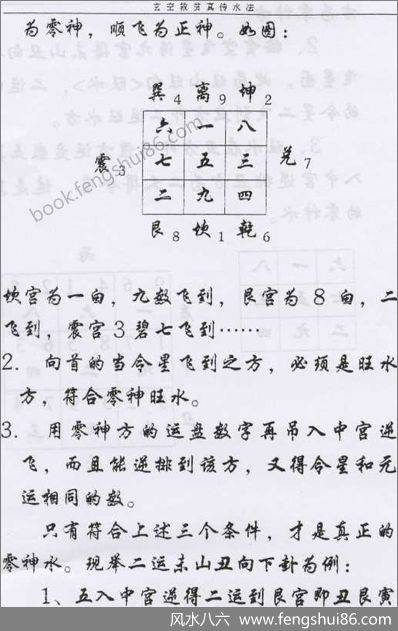 玄空救贫真传水法
为零神，顺飞为正神。如图：
巽4 离9 坤2
六 一 八
震3 七 五 三 兑7
二 九 四
艮8 坎1 乾6
坎宫为一白，九数飞到，艮宫为8白，二
飞到，震宫3碧七飞到……
2. 向首的当令星飞到之方，必须是旺水
方，符合零神旺水。
3. 用零神方的运盘数字再吊入中宫逆
飞，而且能逆排到该方，又得令星和元
运相同的数。
只有符合上述三个条件，才是真正的
零神水。现举二运未山丑向下卦为例：
1、五入中宫逆得二运到艮宫即丑艮寅
book.fengshui86.com
风水八六 www.fengshui86.com